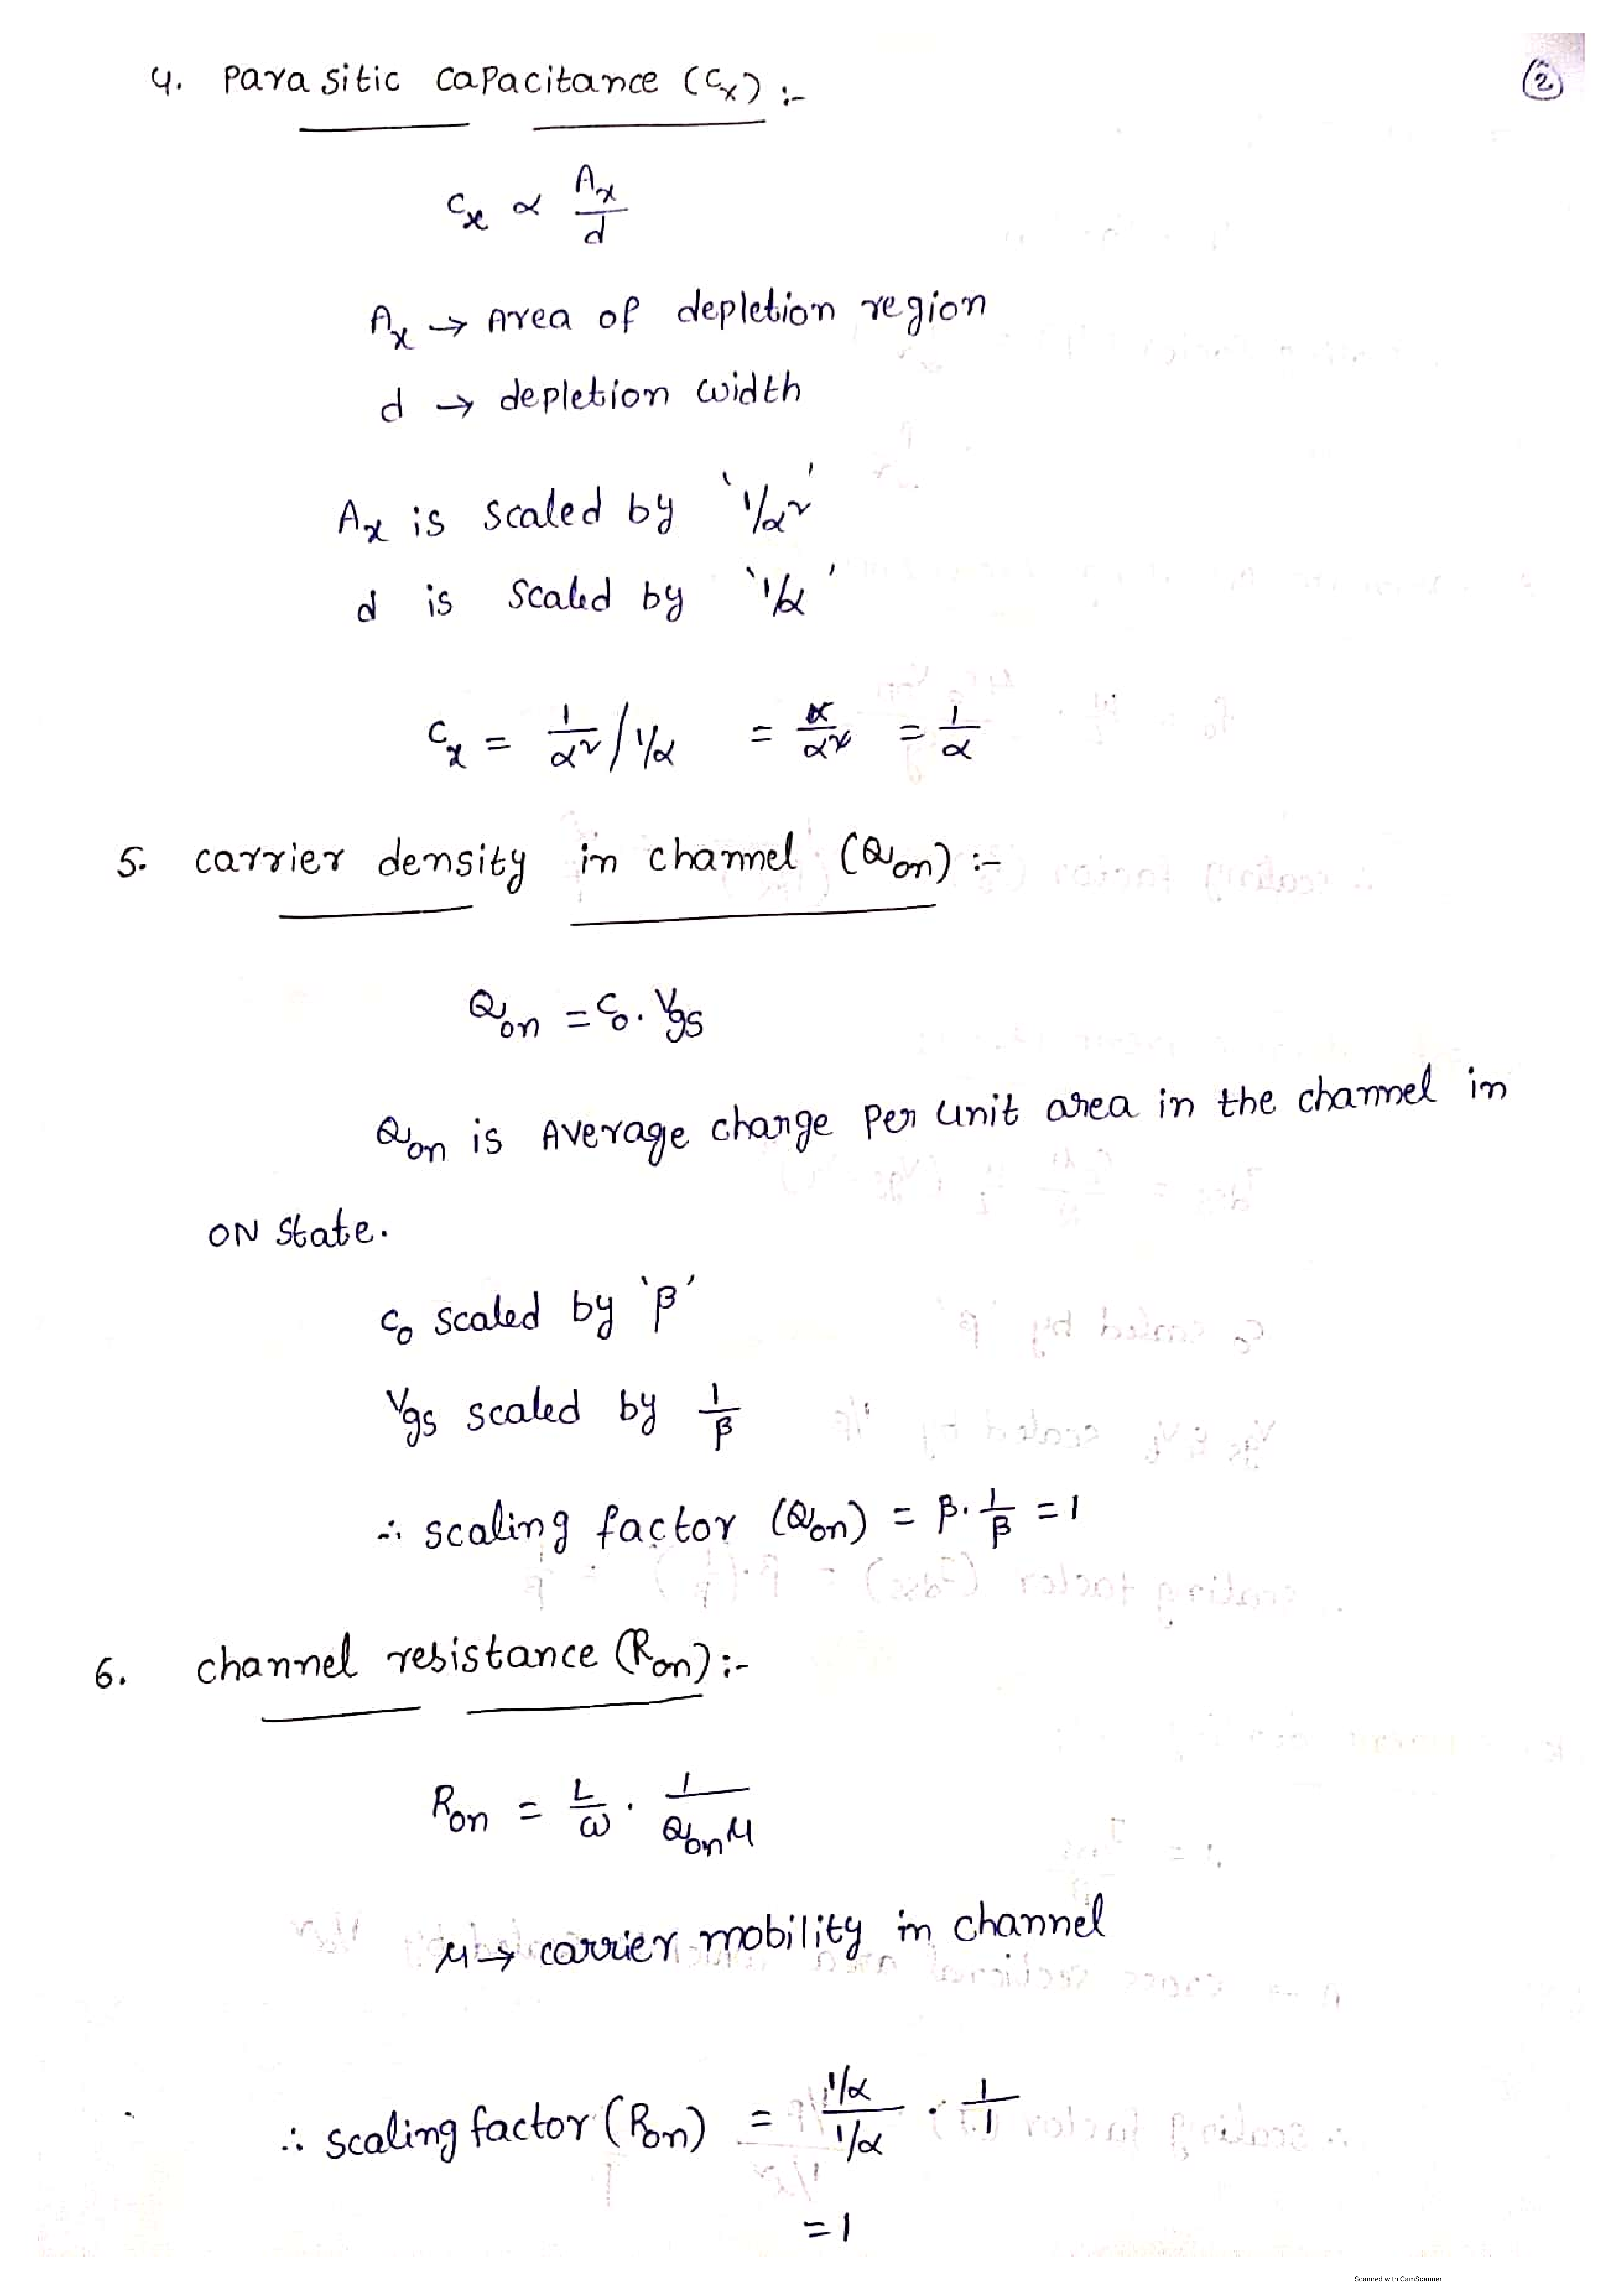 ②
4. Parasitic capacitance (Cx) :-
Cx ∝ Ax/d
Ax → Area of depletion region
d → depletion width
Ax is scaled by '1/α²'
d is scaled by '1/α'
Cx = 1/α² / 1/α = α/α² = 1/α
5. carrier density in channel (Qon) :-
Qon = C₀. Vgs
Qon is Average change Per unit area in the channel in
ON state.
C₀ scaled by 'β'
Vgs scaled by 1/β
∴ scaling factor (Qon) = β. 1/β = 1
6. channel resistance (Ron) :-
Ron = L/ω . 1/Qonμ
μ → carrier mobility in channel
∴ scaling factor (Ron) = 1/α / 1/α . 1/1
= 1
Scanned with CamScanner